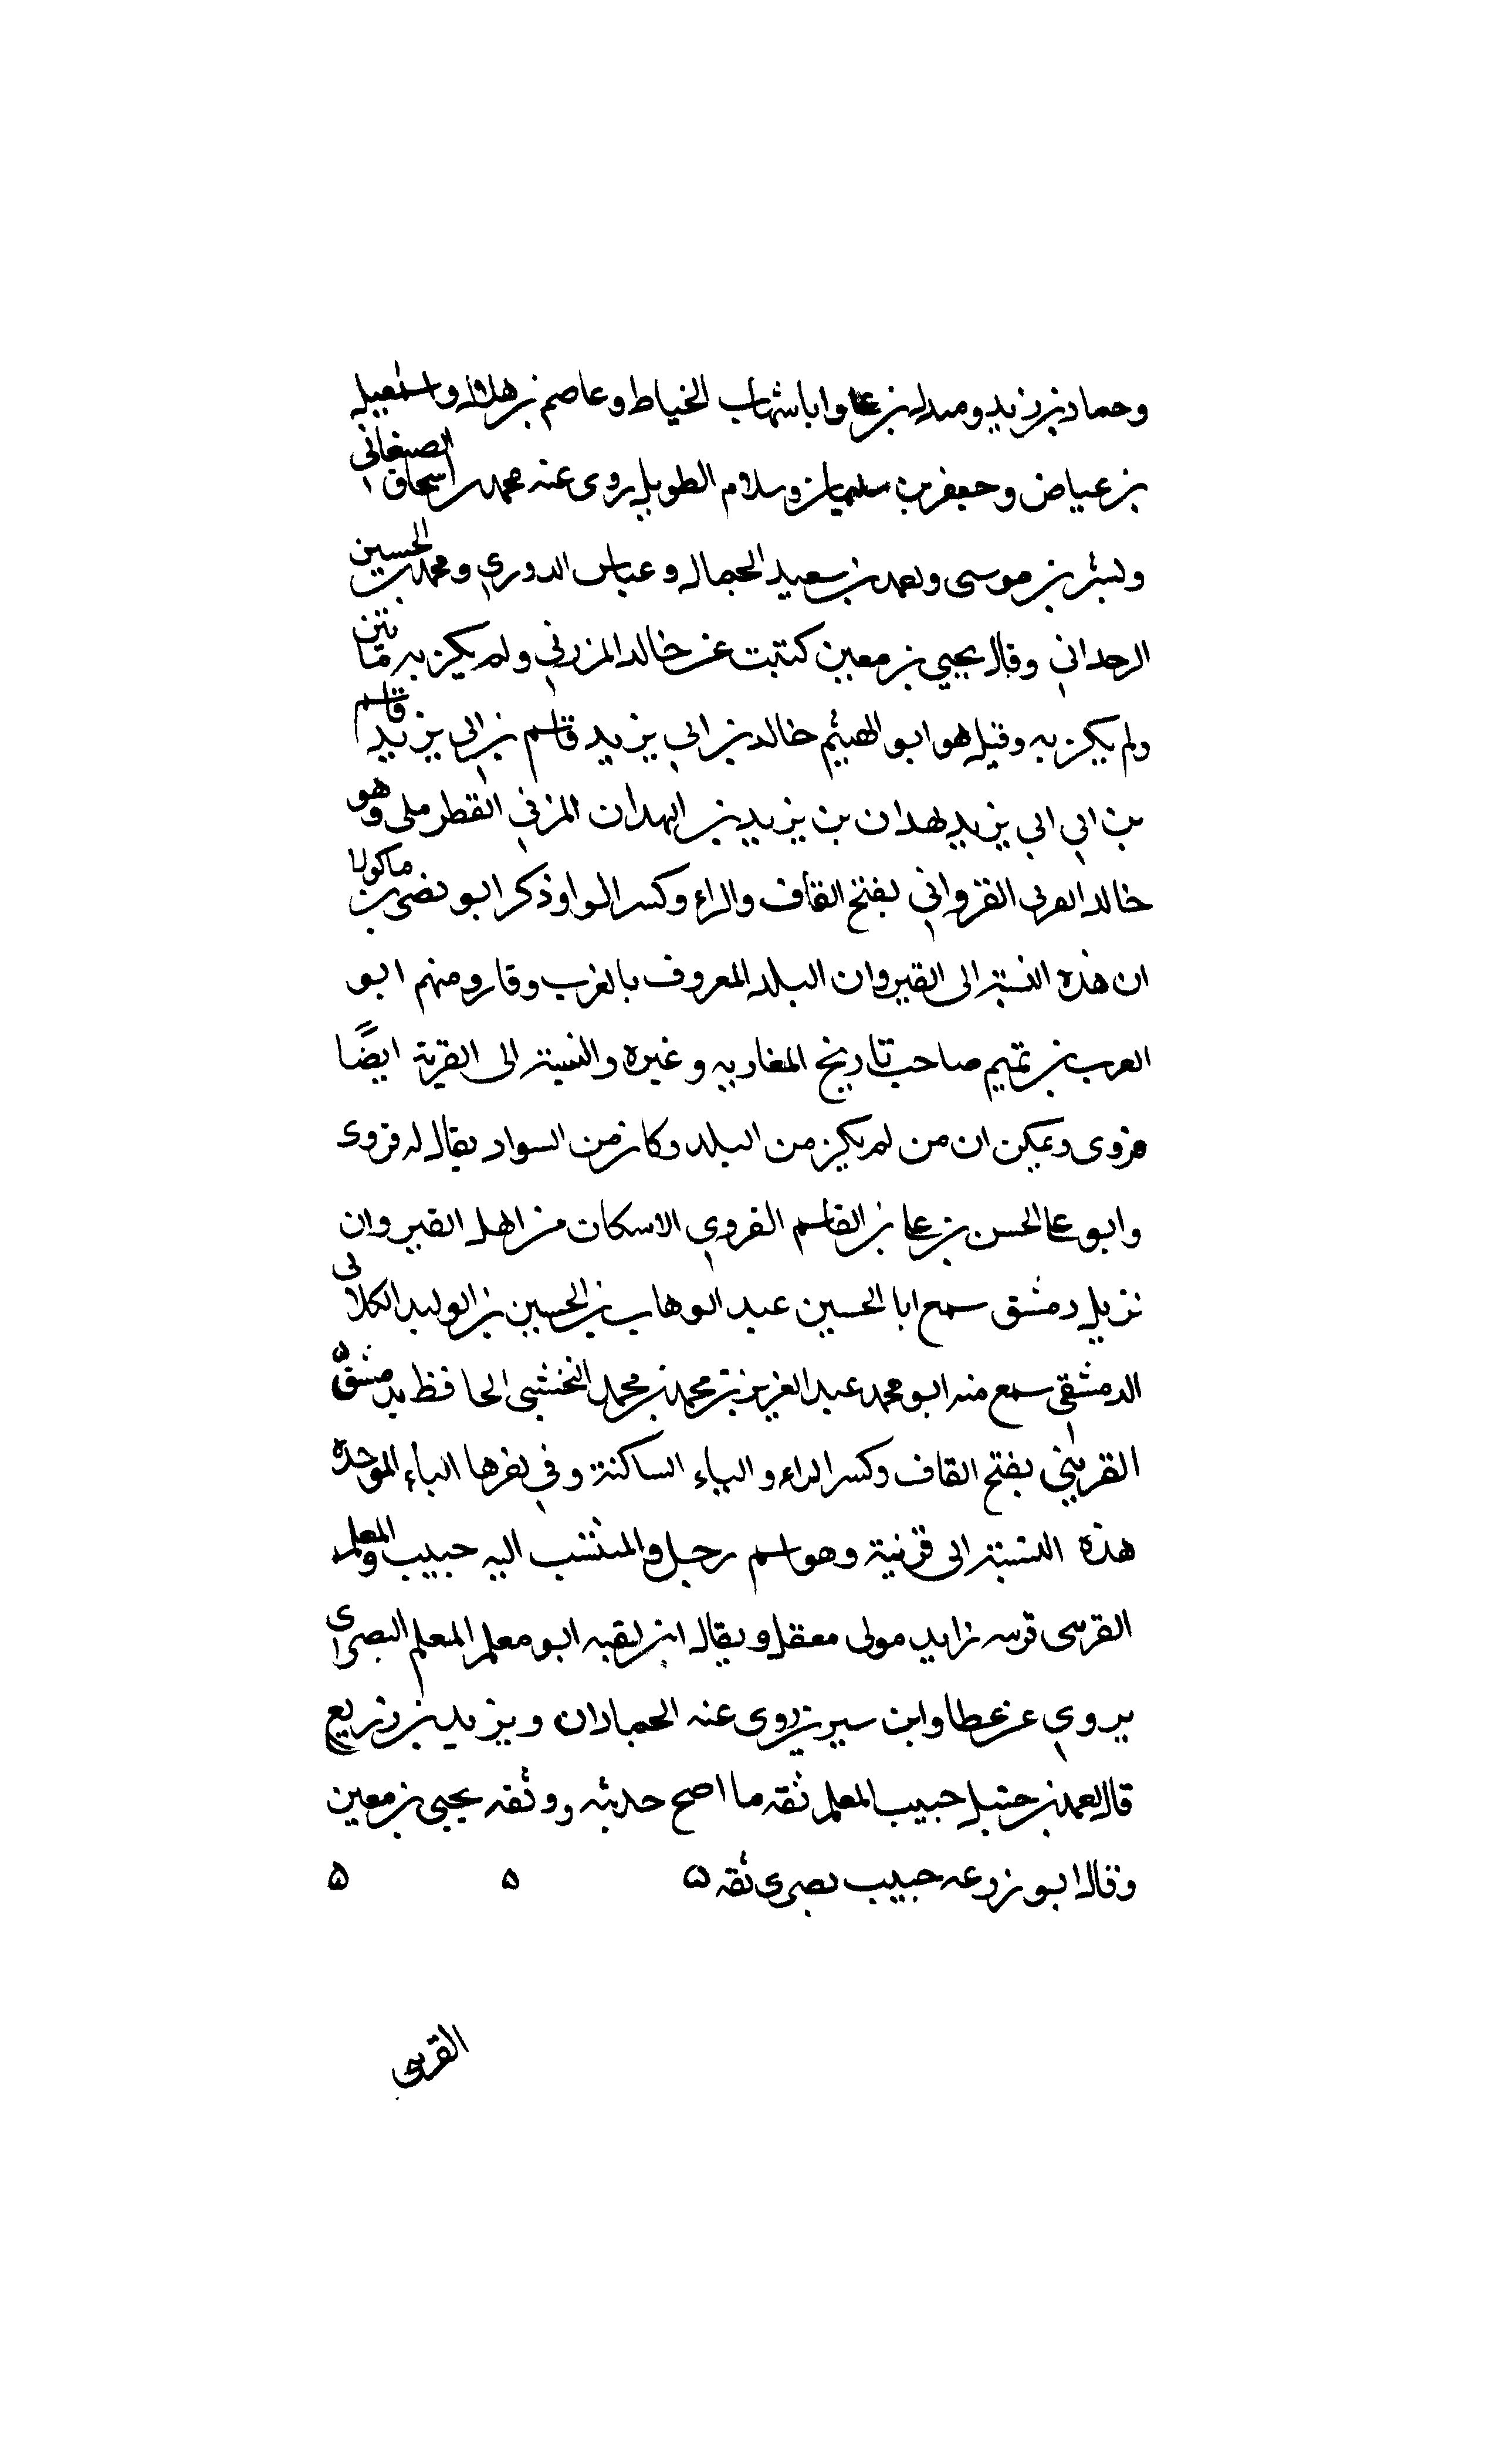 وحماد بن زيد ومندل بن علي وابا شهاب الخياط وعاصم بن هلال واسمعيل
بن عياض وجعفر بن سليمان وسلام الطويل روى عنه محمد بن اسحاق الصنعاني
وبشر بن موسى واحمد بن سعيد الجمال وعباس الدوري ومحمد بن الحسين
وقال يحيي بن معين كتبت عن خالد المزرفي ولم يكن به
ولم يكن به وقيل هو ابو الهيثم خالد بن ابي يزيد قاسم بن ابي يزيد قاسم
بن ابي ابي يزيد بهدان بن يزيد بن البهدان المزرفي القطربلي وهو
خالد القرواني بفتح القاف والراء وكسر الواو ذكر ابو نصر بن ماكولا
ان هذه النسبة الى القيروان البلد المعروف بالغرب وقال ومنهم ابو
العرب بن تميم صاحب تاريخ المغاربه وغيره والنسبة الى القرية ايضًا
قروى ويمكن ان من لم يكن من البلد وكان من السواد يقال له قروى
وابو علي الحسن بن علي بن القاسم القروي الاسكاف من اهل القيروان
نزيل دمشق سمع ابا الحسين عبد الوهاب بن الحسين بن الوليد الكلابى
الدمشقي سمع منه ابو محمد عبد العزيز بن محمد بن محمد النخشبي الحافظ بدمشق ه
القريبي بفتح القاف وكسر الراء والياء الساكنة وفي اخرها الباء الموحدة
هذه النسبة الى قريبة وهو اسم رجل والمنتسب اليه حبيب المعلم
زايد مولى معقل ويقال ابن بقيه ابو معلم المعلم البصرى
يروي عن عطا وابن سيرين روى عنه الحمادان ويزيد بن زريع
قال احمد بن حنبل حبيب المعلم ثقه ما اصح حديثه ووثقه يحيى بن معين
وقال ابو زرعه حبيب بصرى ثقه ه ه ه
القريبي